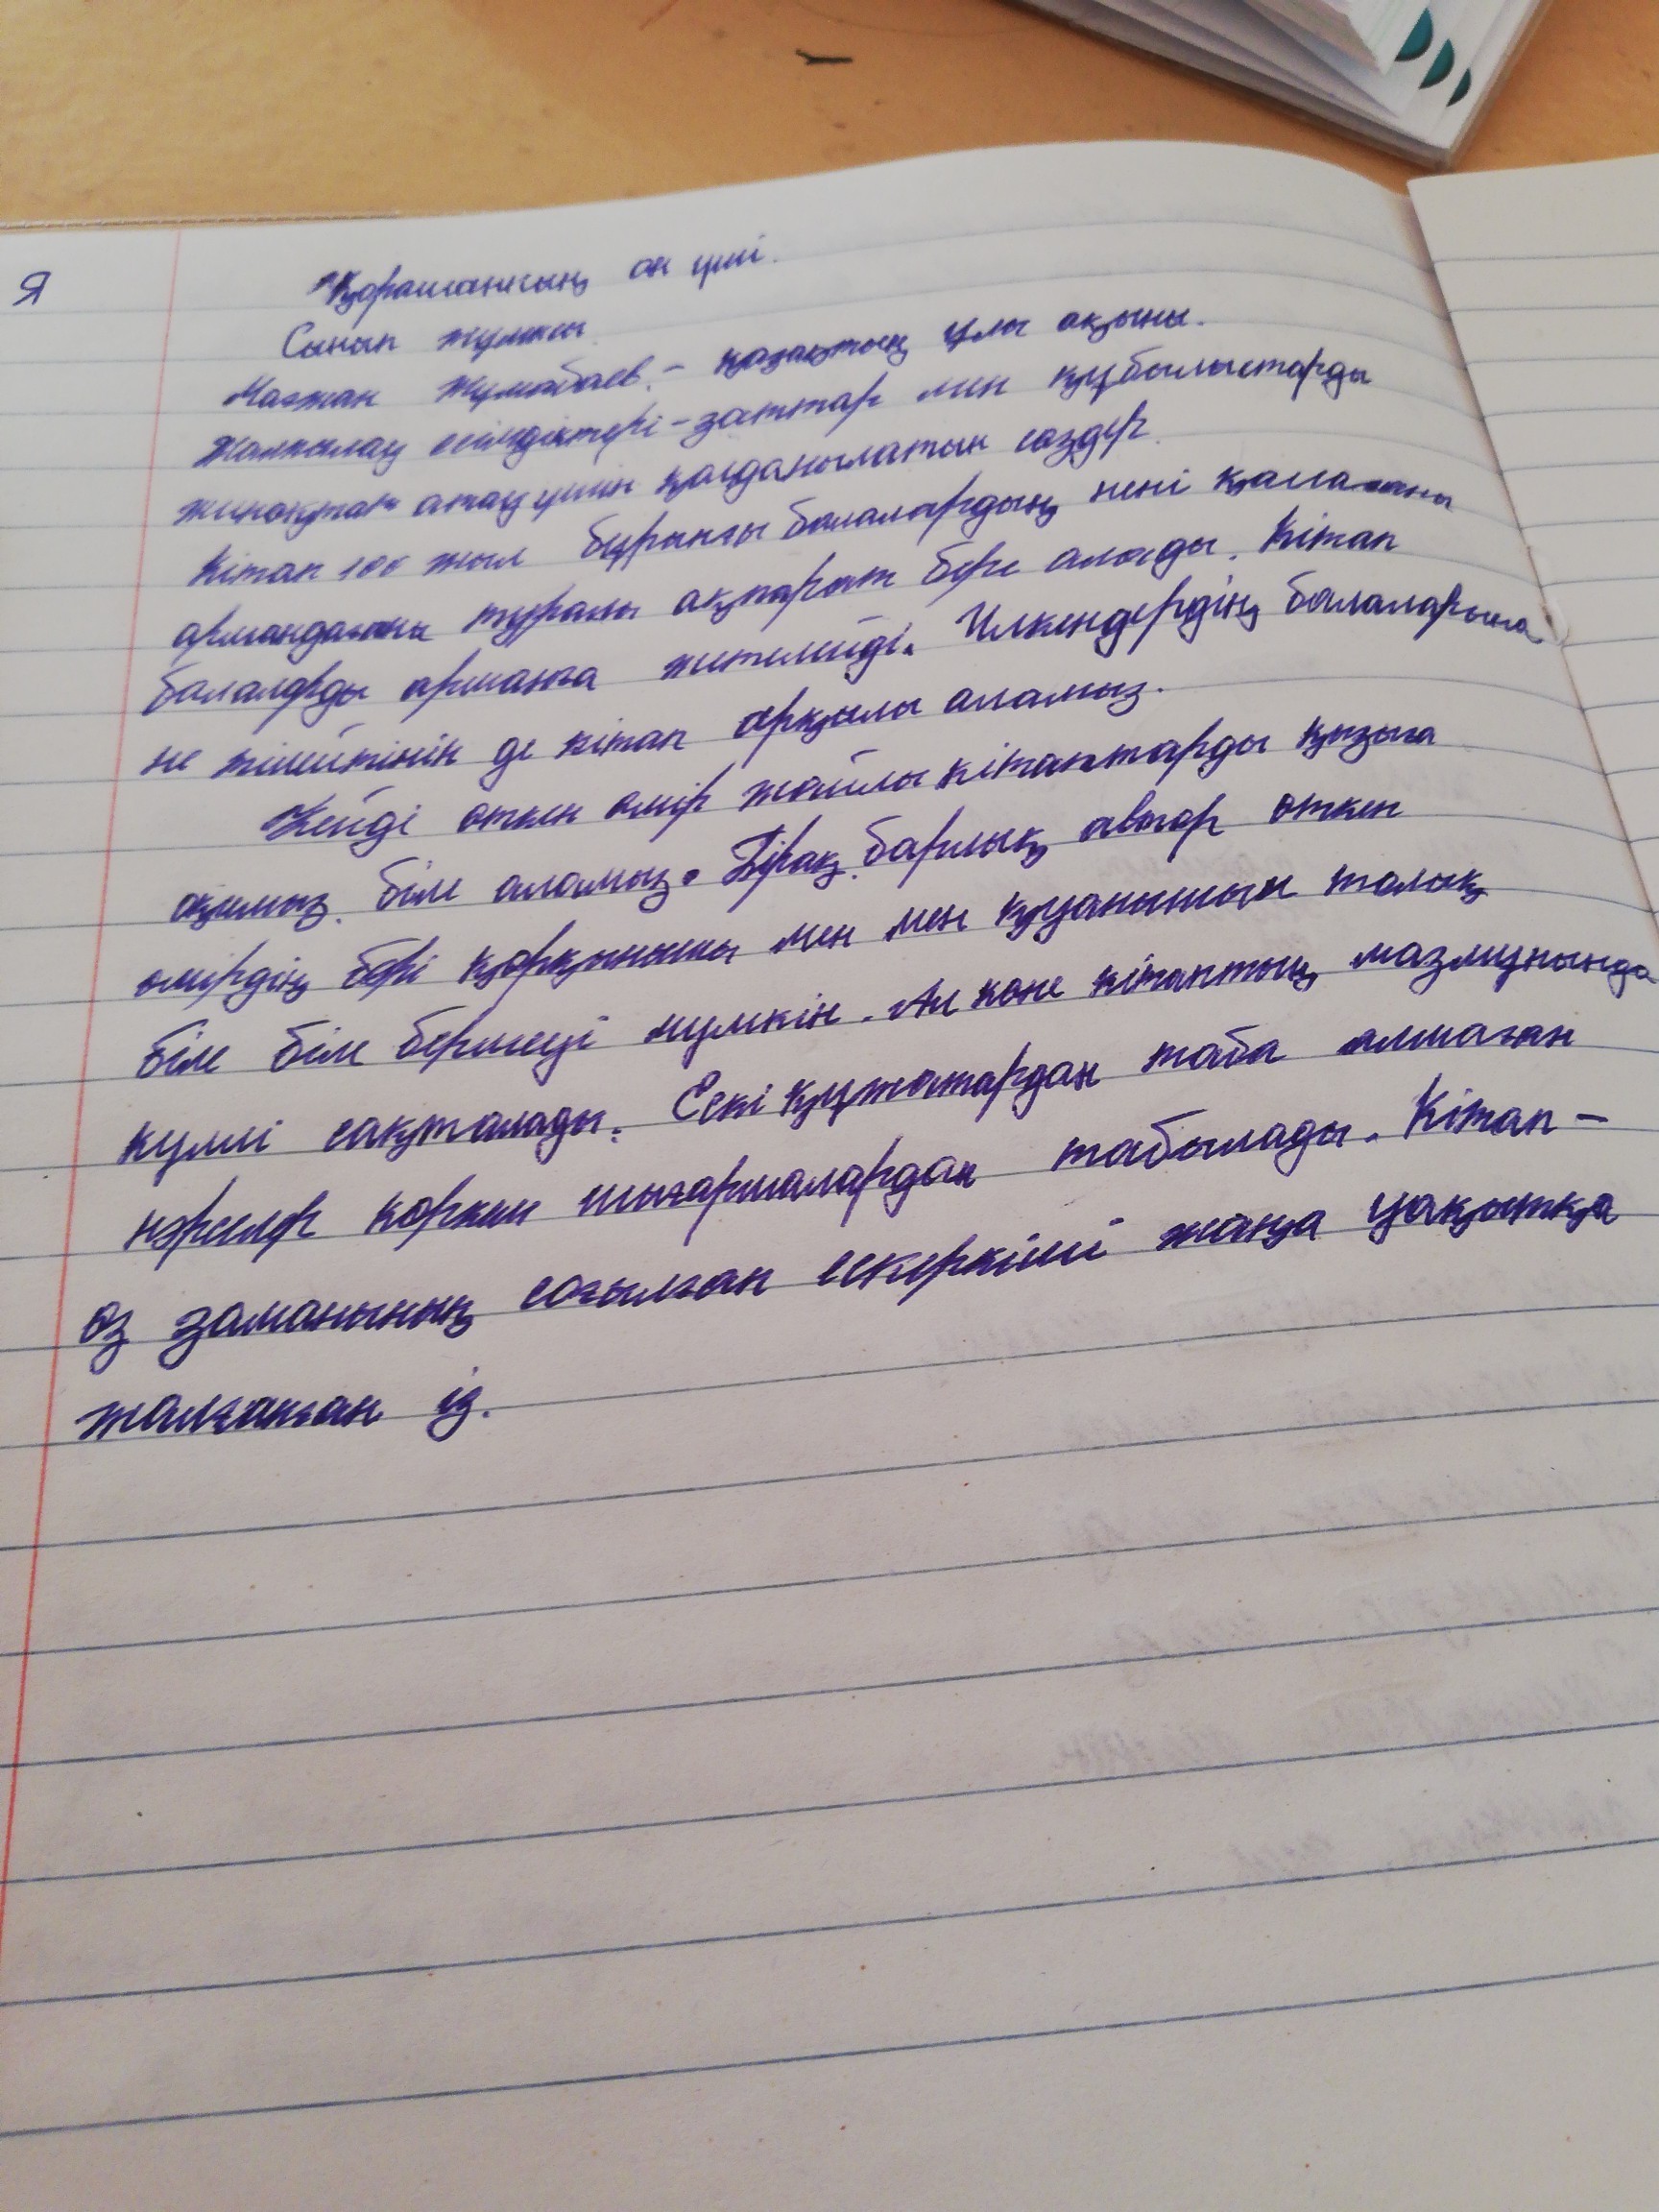 Я
Қарашаның он үші.
Сынып жұмысы.
Мағжан Жұмабаев. – қазақтың ұлы ақыны.
Жалпылау есімдіктері – заттар мен құбылыстарды
жинақтап атау үшін қолданылатын сөздер.
Кітап 100 жыл бұрынғы балалардың нені қалағаны
армандағаны туралы ақпарат бере алады. Кітап
балаларды арманға жетелейді. Үлкендердің балаларына
не тілейтінін де кітап арқылы аламыз.
Кейді өткен өмір жайлы кітаптарды қызыға
оқимыз. біле аламыз. Бірақ барлық автор өткен
өмірдің бәрі қорқынышы мен мен қуанышын толық
біле біле бермеуі мүмкін. Ал көне кітаптың мазмұнында
күллі сақталады. Ескі құжаттардан таба алмаған
нәрселер көркем шығармалардан табылады. Кітап –
өз заманының соғылған ескерткіші жаңа уақытқа
жалғанған із.